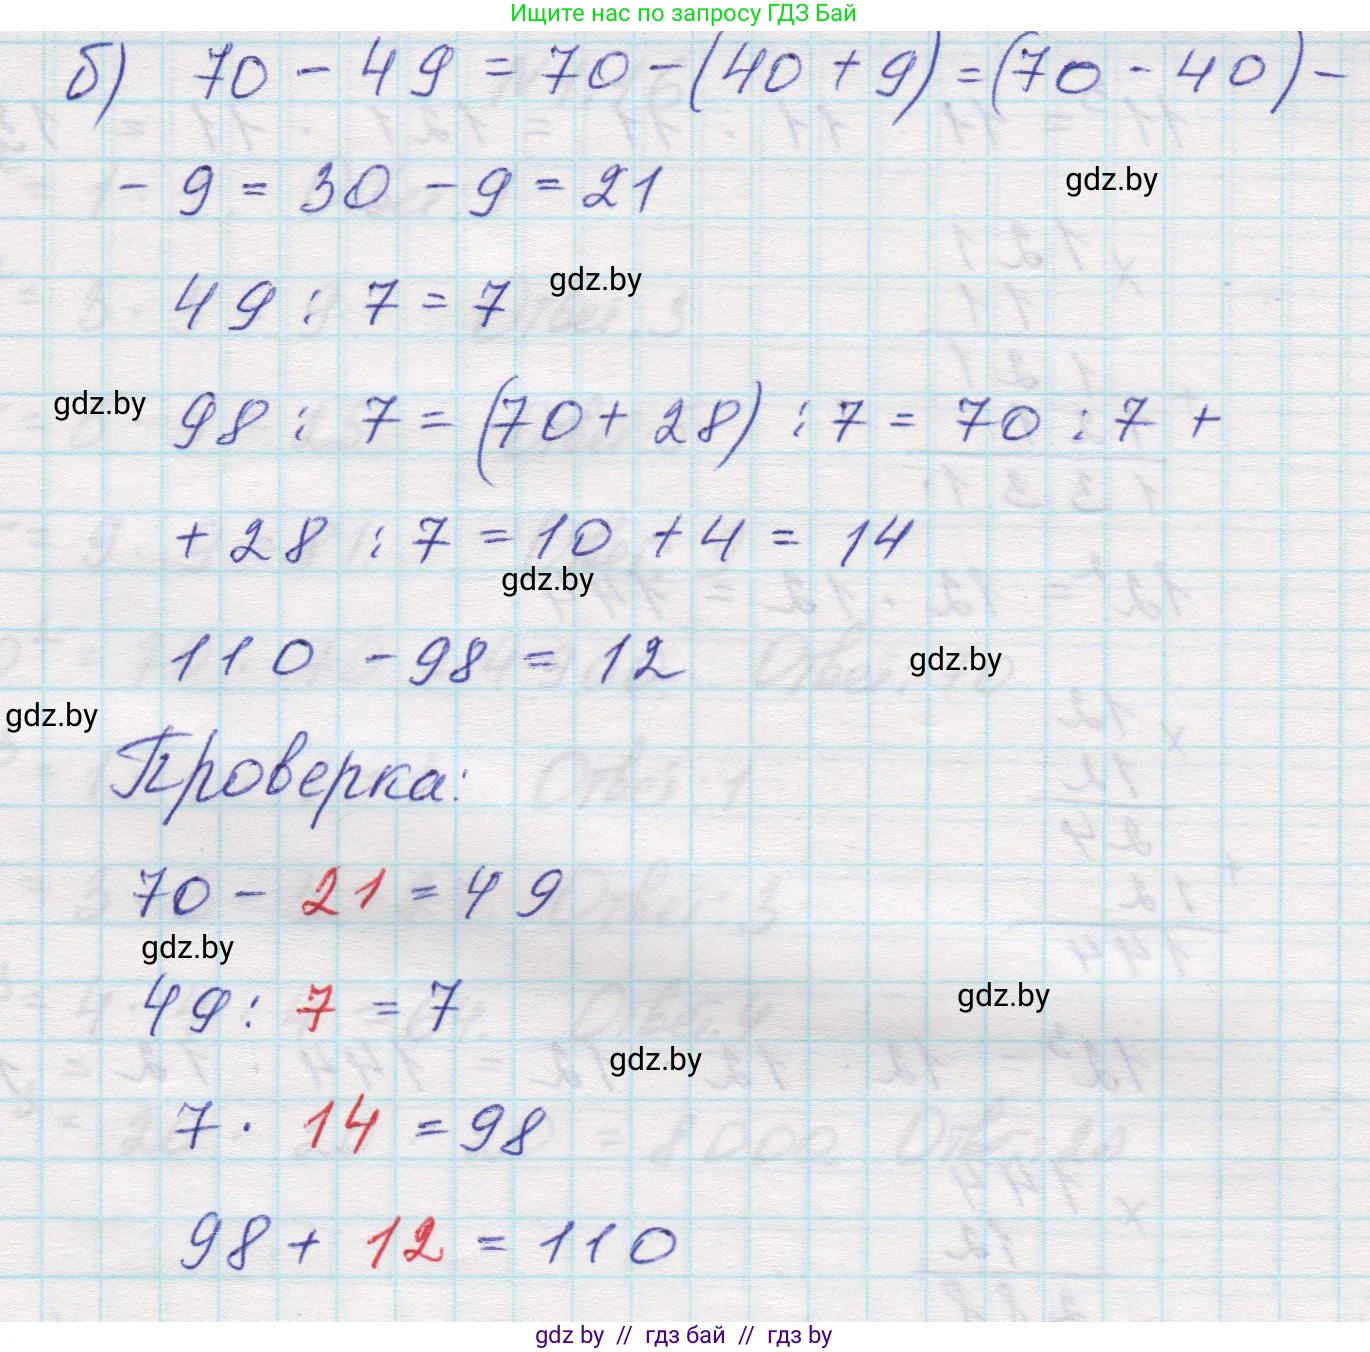 Ищите нас по запросу ГДЗ Бай
б) 70 - 49 = 70 - (40 + 9) = (70 - 40) -
- 9 = 30 - 9 = 21
gdz.by
49 : 7 = 7
gdz.by
gdz.by
98 : 7 = (70 + 28) : 7 = 70 : 7 +
+ 28 : 7 = 10 + 4 = 14
gdz.by
110 - 98 = 12
gdz.by
gdz.by
Проверка:
70 - 21 = 49
gdz.by
49 : 7 = 7
gdz.by
gdz.by
7 · 14 = 98
98 + 12 = 110
gdz by // гдз бай // гдз by